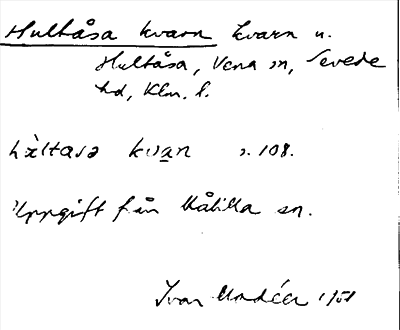 Hultåsa kvarn kvarn u.
Hultåsa, Vena sn, Sevede
hd, Klm. l.
hὰltasa kvan s. 108.
Uppgift från Målilla sn.
Ivar Modéer 19